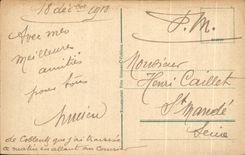 18 déc 1918
Avec mes
meilleures
amitiés
pour tous
Lucien
de Coblentz que j'ai traversée
ce matin en allant au Courrier
F. M.
Monsieur
Henri Caillet
St Mandé
Seine